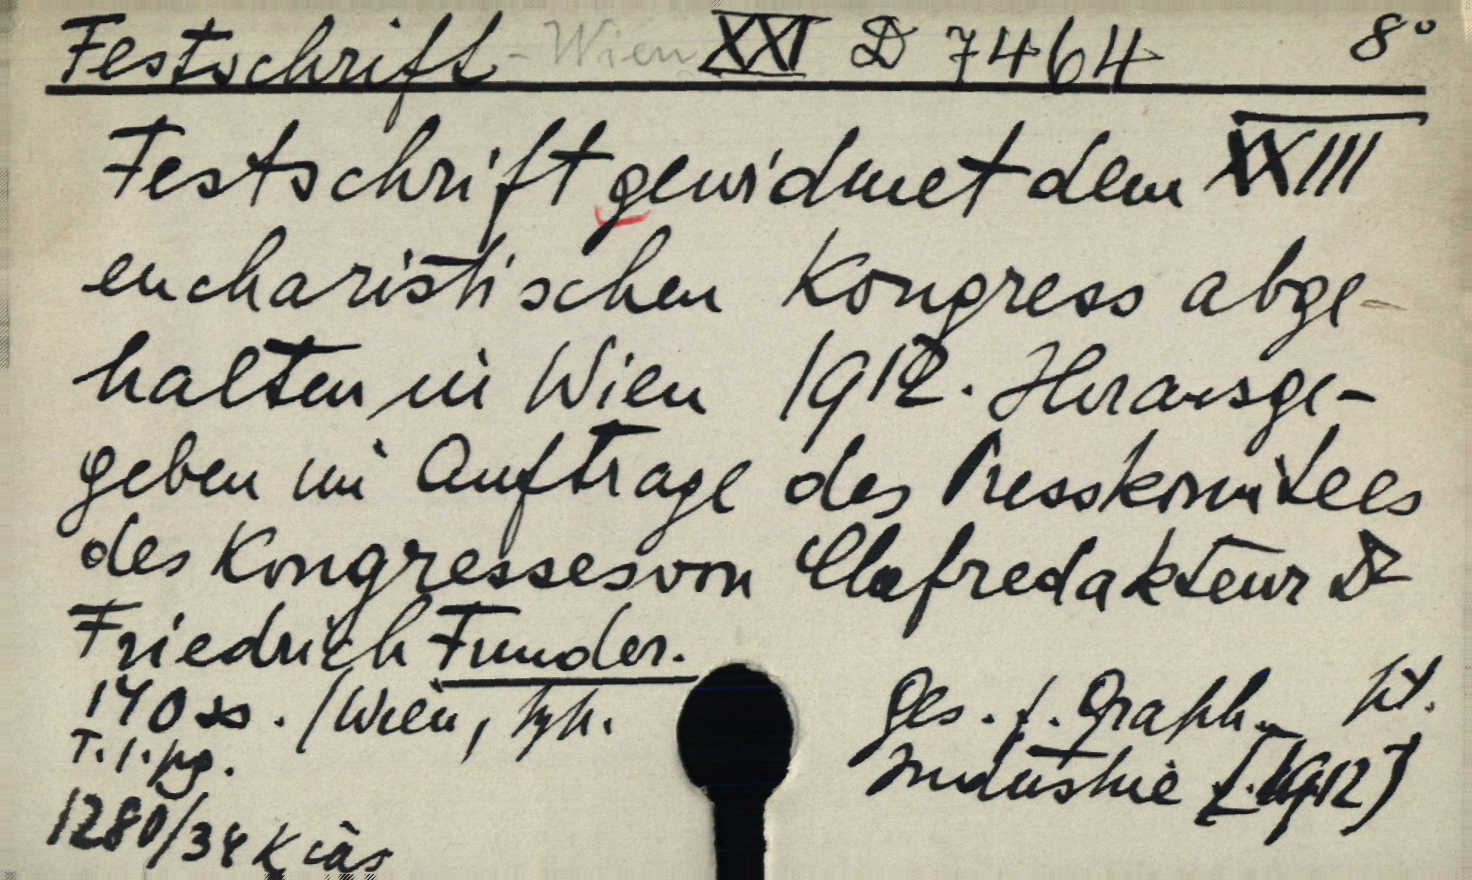 Festschrift - Wien XXI D 7464 8°
Festschrift gewidmet dem XXIII
eucharistischen Kongress abge-
halten in Wien 1912. Herausge-
geben im Auftrage des Presskomitees
des Kongresses von Chefredakteur Dr
Friedrich Funder.
140 ss. (Wien, typ. Ges. f. Graph.
T. 1. pg. Industrie [1912)
1280/34 Kiás